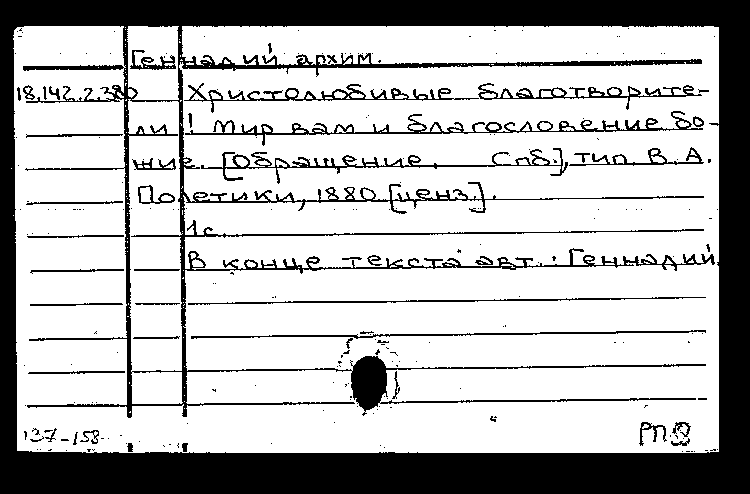 Геннадий, архим.
18.142.2.380 Христолюбивые благотворите-
ли! Мир вам и благословение бо-
жие. [Обращение. Спб.], тип. В. А.
Полетики, 1880 [ценз.].
1 с.
В конце текста авт.: Геннадий.
137-158